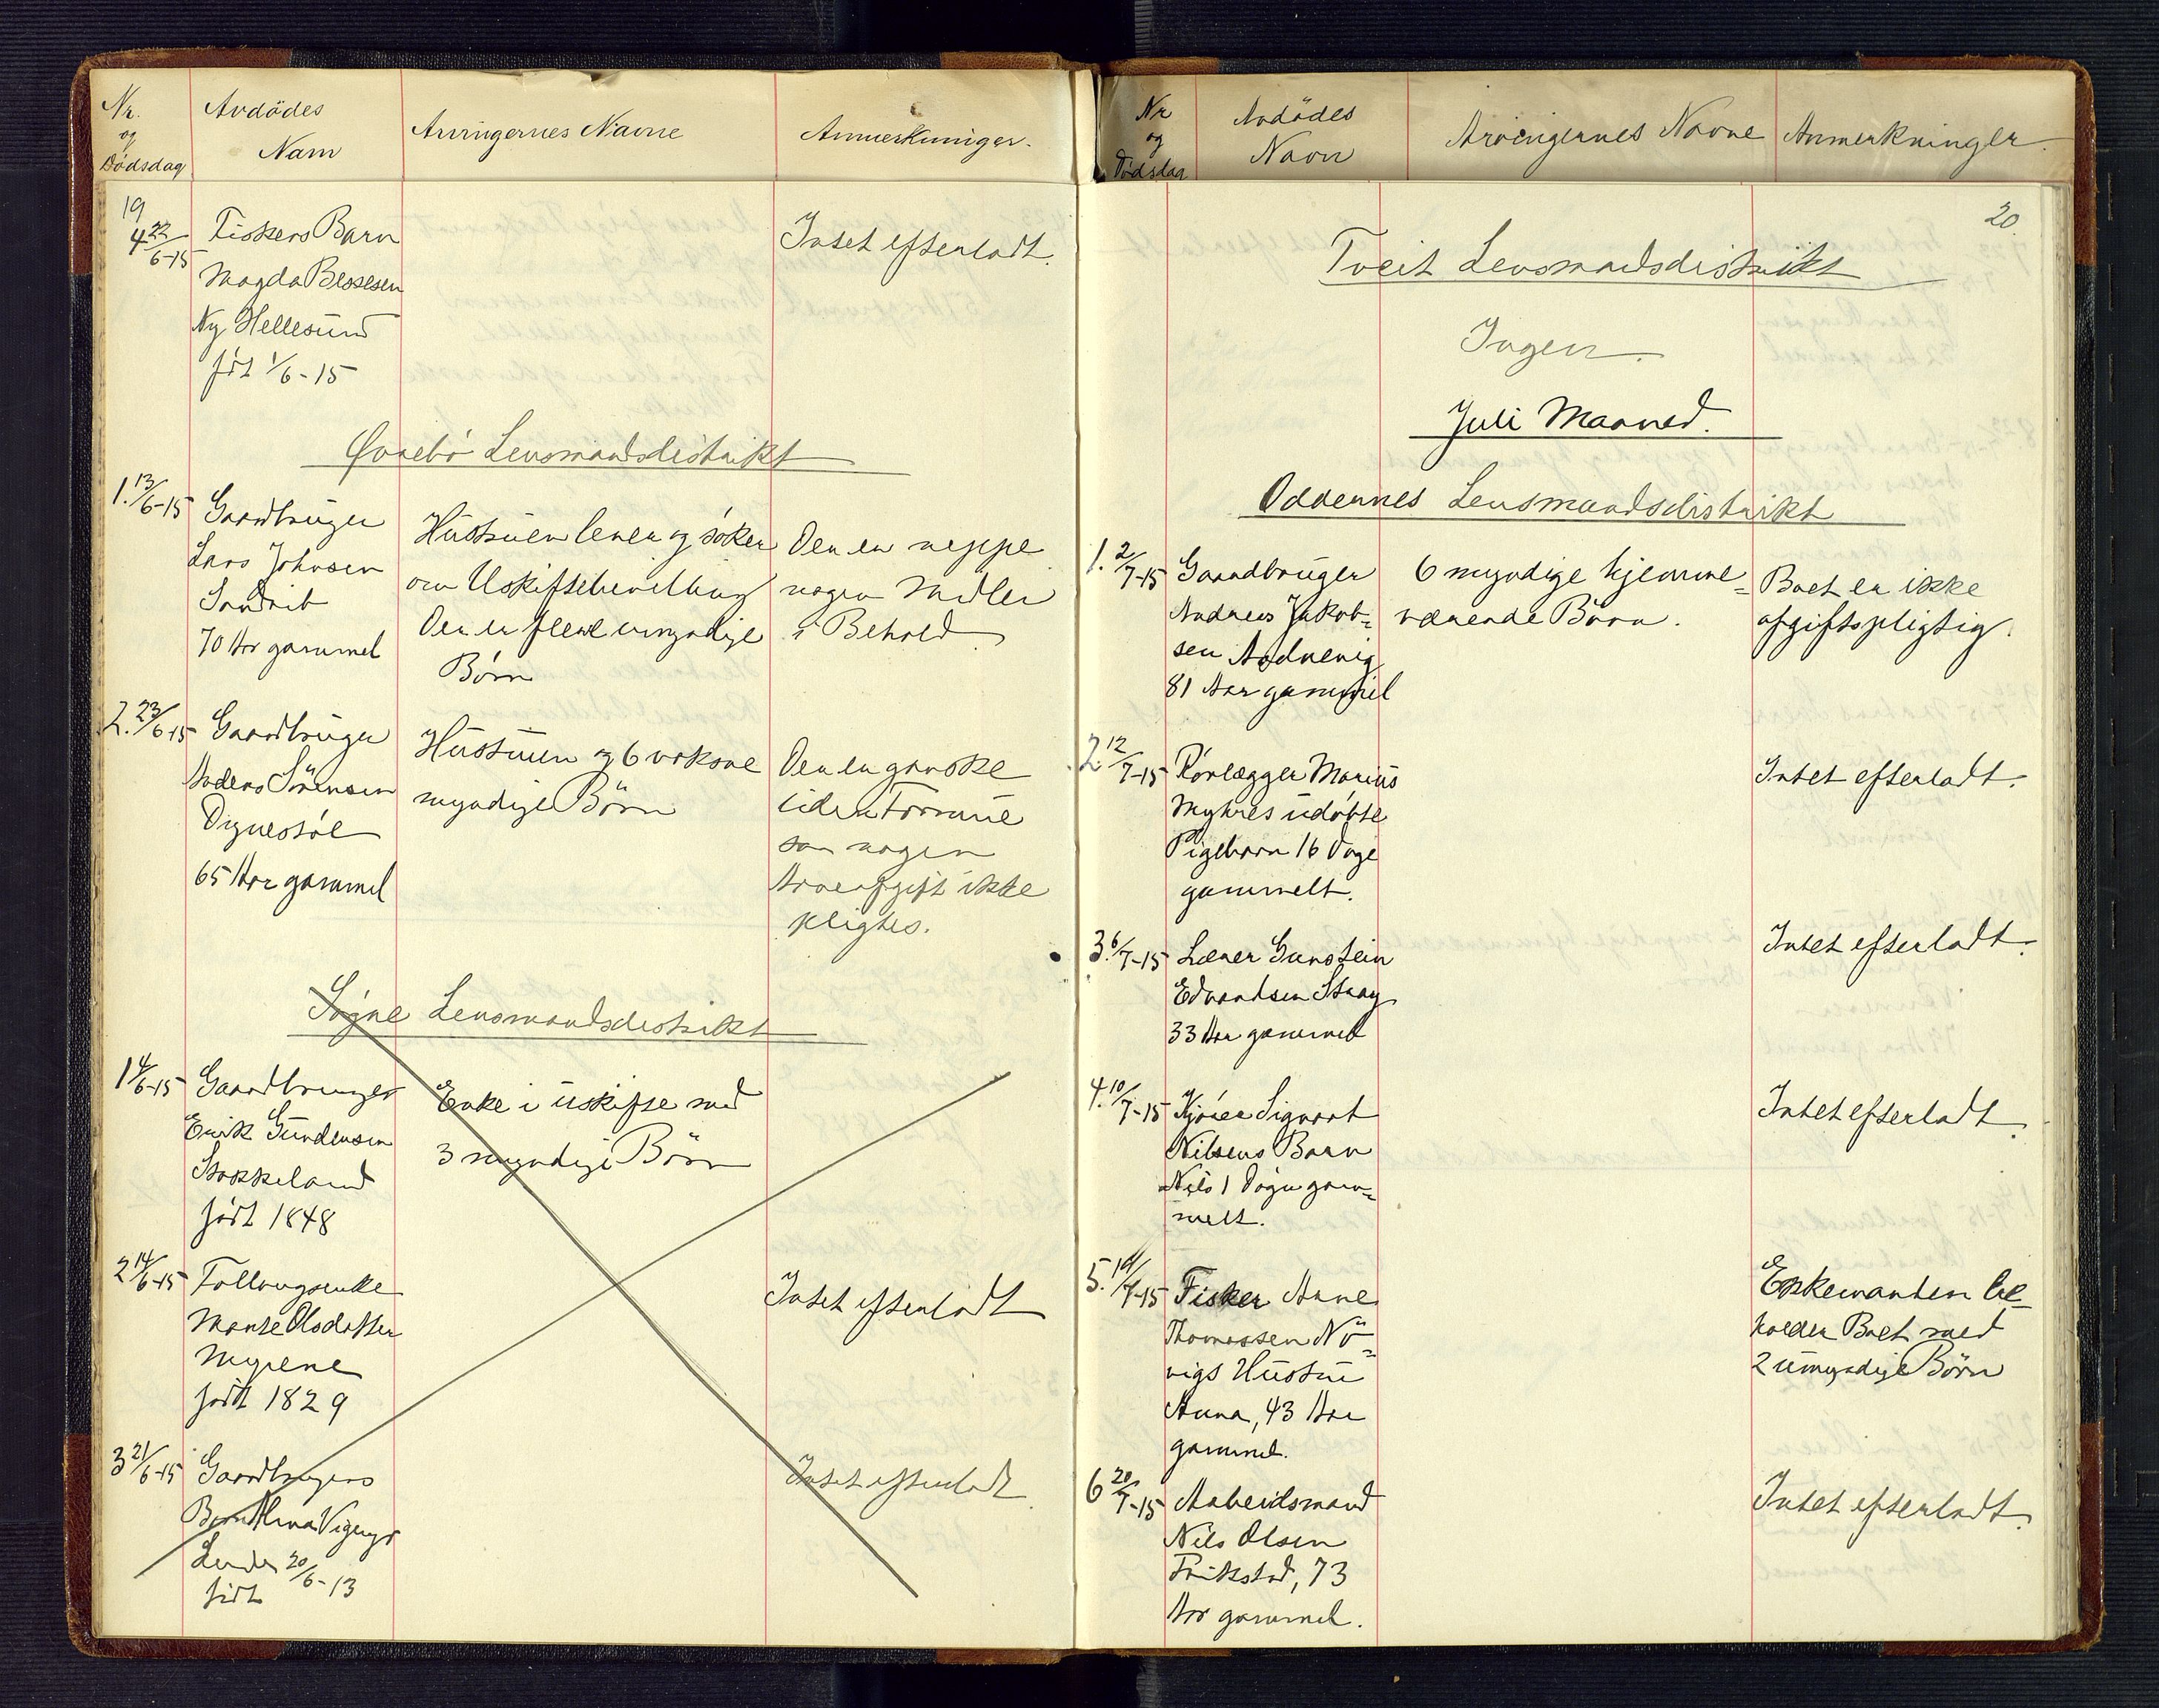 Nr.
og
Dödsdag
Avdödes
Navn
Arvingernes Navne
Anmerkninger.
19
4 22/6-15
Fiskers Barn
Magda Blessesen
Ny Hellesund
født 1/6-15
Intet efterladt.
Øvrebö Lensmandsdistrikt
1. 13/6-15
Gaardbruger
Lars Johnsen
Sandrib
70 Aar gammel
Hustruen lever og søker
om Uskiftebevilling
Der er flere umyndige
Börn
Der er neppe
nogen Midler
i Behold
2. 23/6-15
Gaardbruger
Anders Sörensen
65 Aar gammel
Hustruen og 6 voksne
myndige Börn
Der er ganske
liden Formue
saa nogen
Arveafgift ikke
pligtes.
Søgne Lensmandsdistrikt
1 4/6-15
Gaardbruger
Erik Gundersen
Stokkeland
født 1848
Enke i uskifte med
3 myndige Börn
2 14/6-15
Follaugsenke
Marte Olsdatter
Myrene
født 1829
Intet efterladt
3 21/6-15
Gaardbrugers
Barn Alma
20/6-13
født
Intet efterladt
Nr
og
Dödsdag
Avdödes
Navn
Arvingernes Navne
Anmerkninger.
20.
Tveit Lensmandsdistrikt
Ingen.
Juli Maaned.
Oddernes Lensmandsdistrikt
1. 2/7-15
Gaardbruger
Andreas Jakob=
sen
81 Aar gammel
6 myndige hjemme=
værende Börn.
Boet er ikke
afgiftspligtig.
2. 12/7-15
Rörlægger Marius
Myhres udöbte
Pigebarn 16 Dage
gammelt.
Intet efterladt.
3. 6/7-15
Lærer Gunstein
Edvardsen Stray
33 Aar gammel
Intet efterladt.
4. 10/7-15
Kjører Sigvart
Nilsens Barn
Nils 1 Døgn gam=
melt.
Intet efterladt.
5. 14/7-15
Fisker Arne
Thomassen Nö=
vigs Hustru
Anna, 43 Aar
gammel.
Enkemanden be=
holder Boet med
2 umyndige Börn
6 20/7-15
Arbeidsmand
Nils Olsen
Frikstad, 73
Aar gammel.
Intet efterladt.